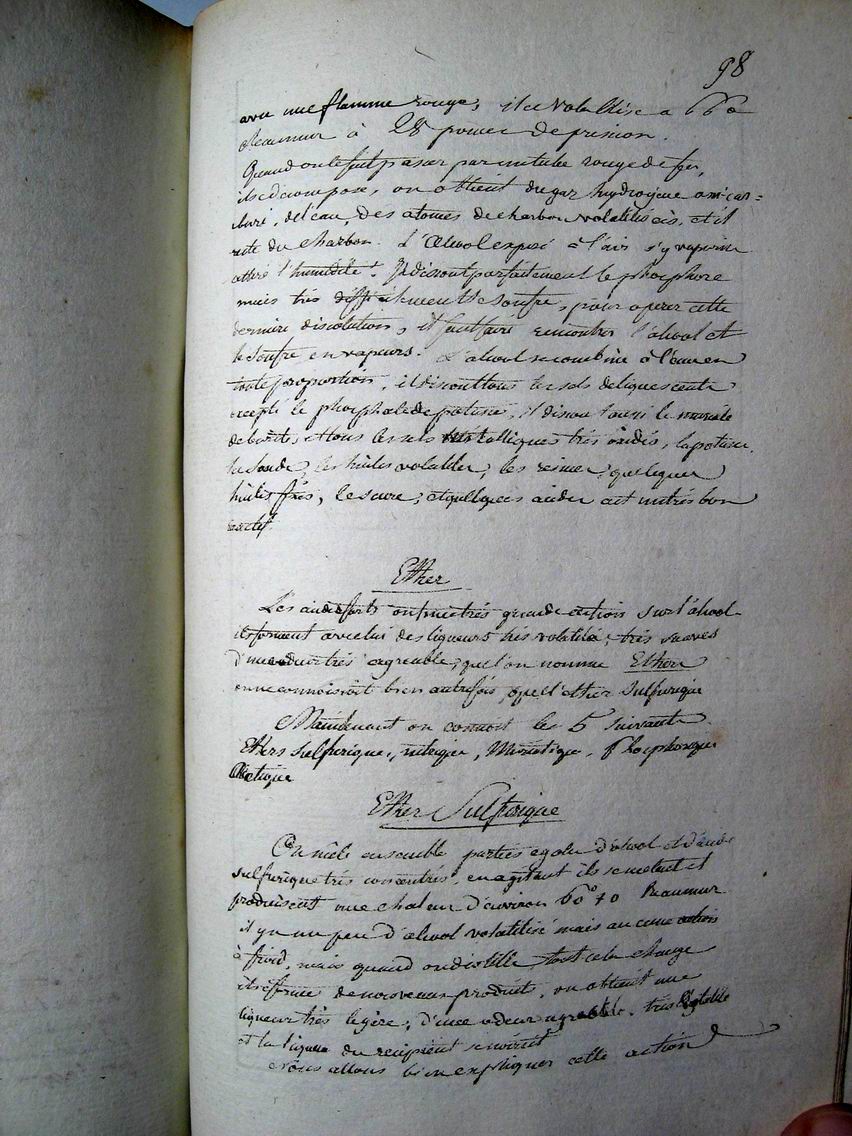 98
avec une flamme rouge, il se volatilise a 66°
Reaumur à 28 pouces de pression.
Quand on le fait passer par un tube rouge de fer,
il se décompose, on obtient du gaz hydrogène oxi-car=
buré, de l'eau, des atomes de charbon volatilisés, et il
reste du charbon. L'alcool exposé à l'air s'y vaporise
attire l'humidité. Il dissout parfaitement le phosphore
mais très difficilement le soufre, pour operer cette
derniere dissolution, il faut faire rencontrer l'alcool et
le soufre en vapeurs. L'alcool se combine à l'eau en
toute proportion, il dissout tous les sels deliquescents
excepté le phosphate de potasse, il dissout aussi le muriate
de et tous les sels metalliques très oxidés, la potasse,
la soude, les huiles volatiles, les resines, quelques
huiles fixes, le sucre, et quelques acides est un très bon
reactif.
Ether
Les acides forts ont une très grande action sur l'alcool
ils forment avec lui des liqueurs très volatiles, très suaves
d'une odeur très agreable, que l'on nomme Ethers
on ne connoissoit bien autrefois, que l'ether sulfurique
Maintenant on connoit les 5 suivants
Ethers sulfurique, nitrique, Muriatique, Phosphorique
Acetique
Ether Sulfurique
On mele ensemble parties egales d'alcool et d'acide
sulfurique très concentrés, en agitant ils se melent et
produisent une chaleur d'environ 60° 70 Reaumur
il y a un peu d'alcool volatilisé mais aucune action
à froid, mais quand on distille tout cela change
il se forme de nouveaux produits, on obtient une
liqueur très legère, d'une odeur agreable, très volatile
et la liqueur du recipient se noircit
Nous allons bien expliquer cette action